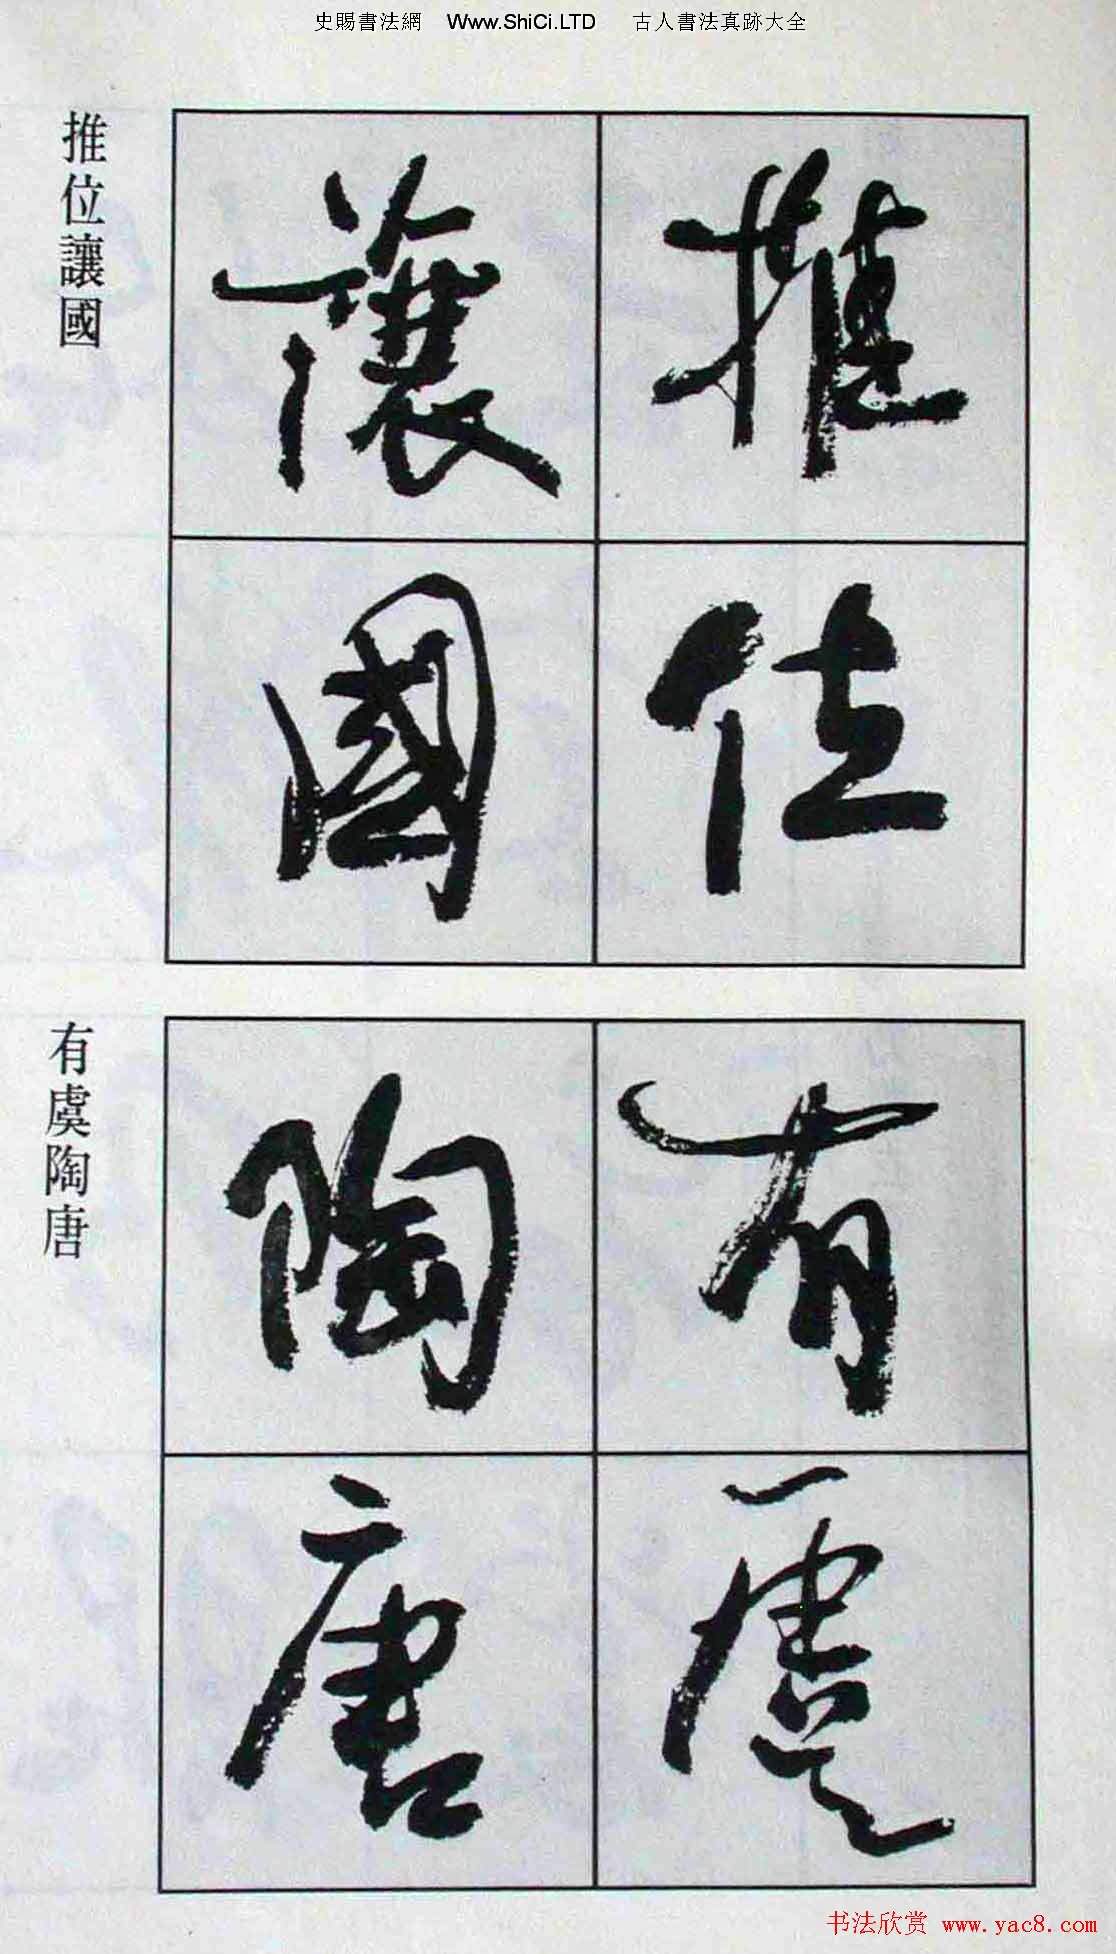 史賜書法網 Www.ShiCi.LTD 古人書法真跡大全
推位
讓國
推位讓國
有虞
陶唐
有虞陶唐
书法欣赏 www.yac8.com